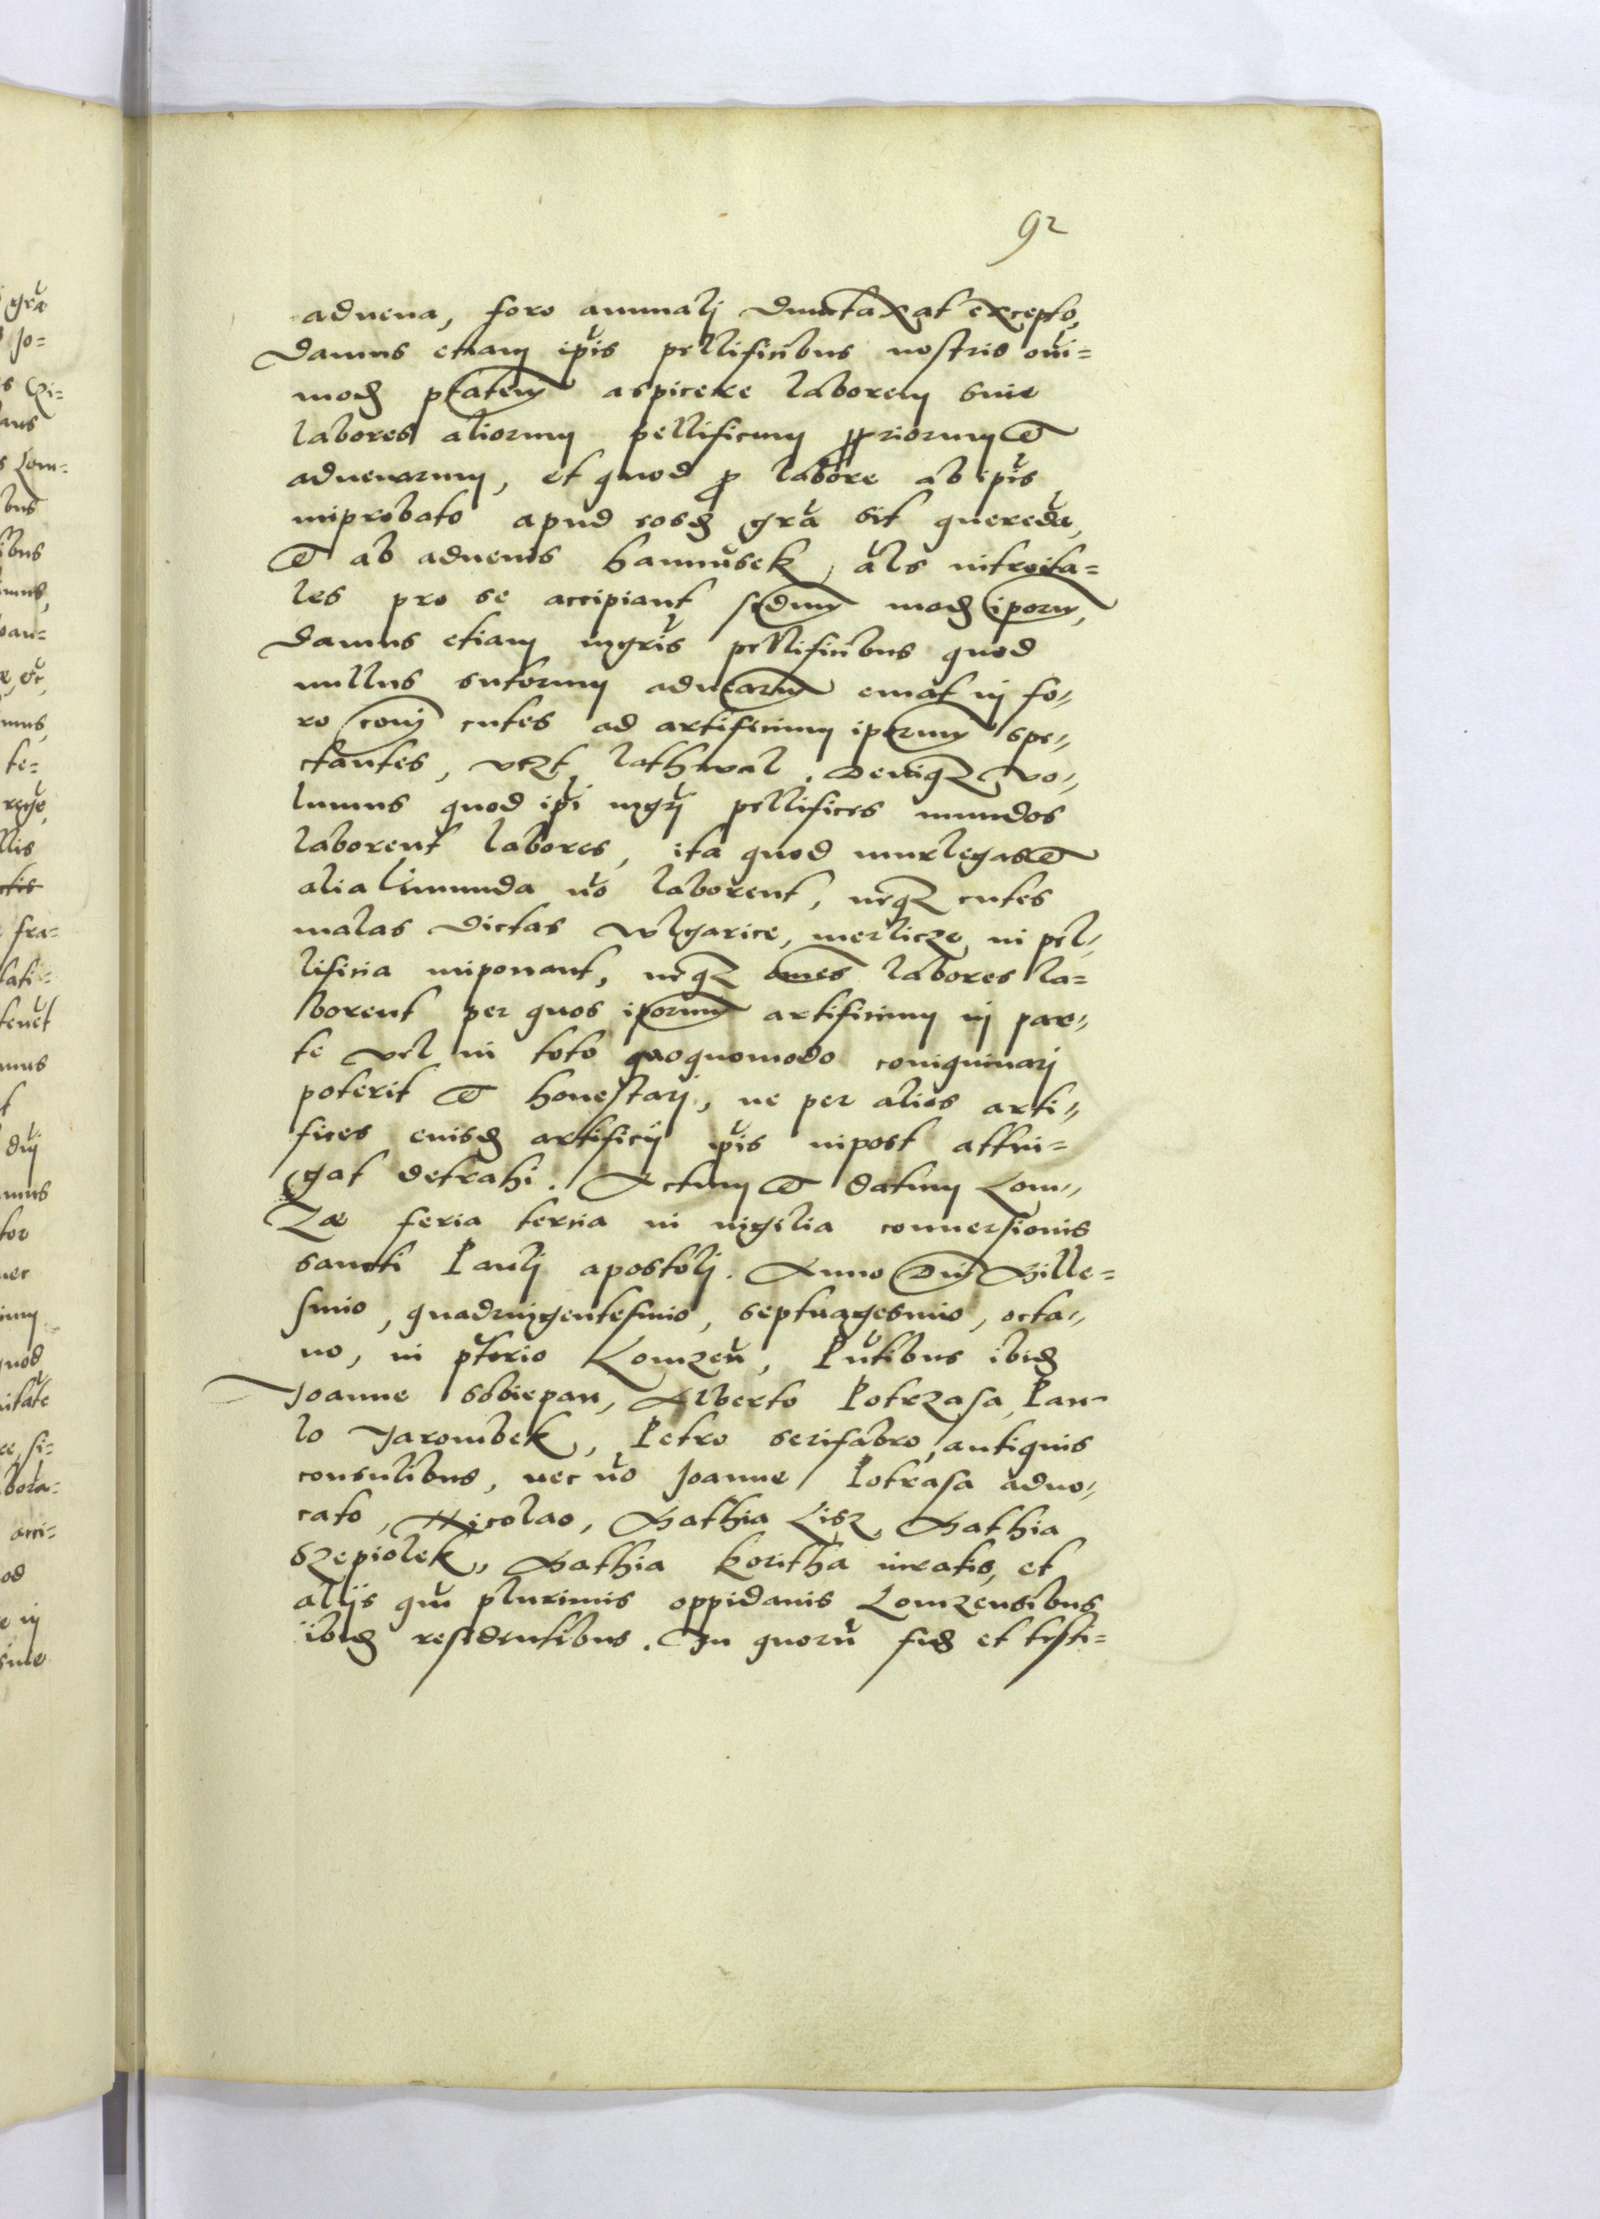 92
aduena, foro annualj Duntaxat excepto,
Damus etiam ip̃is pellificibus nostris oĩ=
mod ptatem aspicere laborem siue
labores aliorum pellificum ꝓpriorum et
aduenarum, et quod ꝓ labore ab ip̃is
improbato apud eosd gr̃a sit quereda,
et ab aduenis hannusek, als introita=
les pro se accipiant scdum mod iporum,
Damus etiam mgris pellificibus quod
nullus sutorum aduearum emat in fo=
ro coni cutes ad artificium iporum spe=
ctantes, vꝫt lathwal. Deniqꝫ vo=
lumus quod ip̃i mgrj pellifices mundos
laborent labores, ita quod murlegas et
alia immunda no laborent, neqꝫ cutes
malas Dictas vlgarice, merlicze in pel=
lificia imponant, neqꝫ omes labores la=
borent per quos iporum artificium in par=
te vel in toto quoquomodo coniquinarj
poterit et honestarj, ne per alios arti=
fices eiusd artificij ip̃is inpost attin=
gat detrahi. Actum et datum Lom=
Zae feria tercia in vigilia conuersionis
sancti Paulj apostolj. Anno Dni Mille=
simo, quadringentesimo, septuagesimo, octa=
uo, in ptorio Lomzen̄, Pn̄tibus ibid
Joanne Sobiepan, Alberto Potrzasa, Pau=
lo Jarombek, Petro serifabro, antiquis
consulibus, nec no Joanne Potrasa aduo=
cato, Nicolao, Mathia Lisz, Mathia
Szepiolek, Mathia Koritha iuratis, et
alijs qm̃ plurimis oppidanis Lomzensibus
ibid residentibus. In quorū fid et testi=